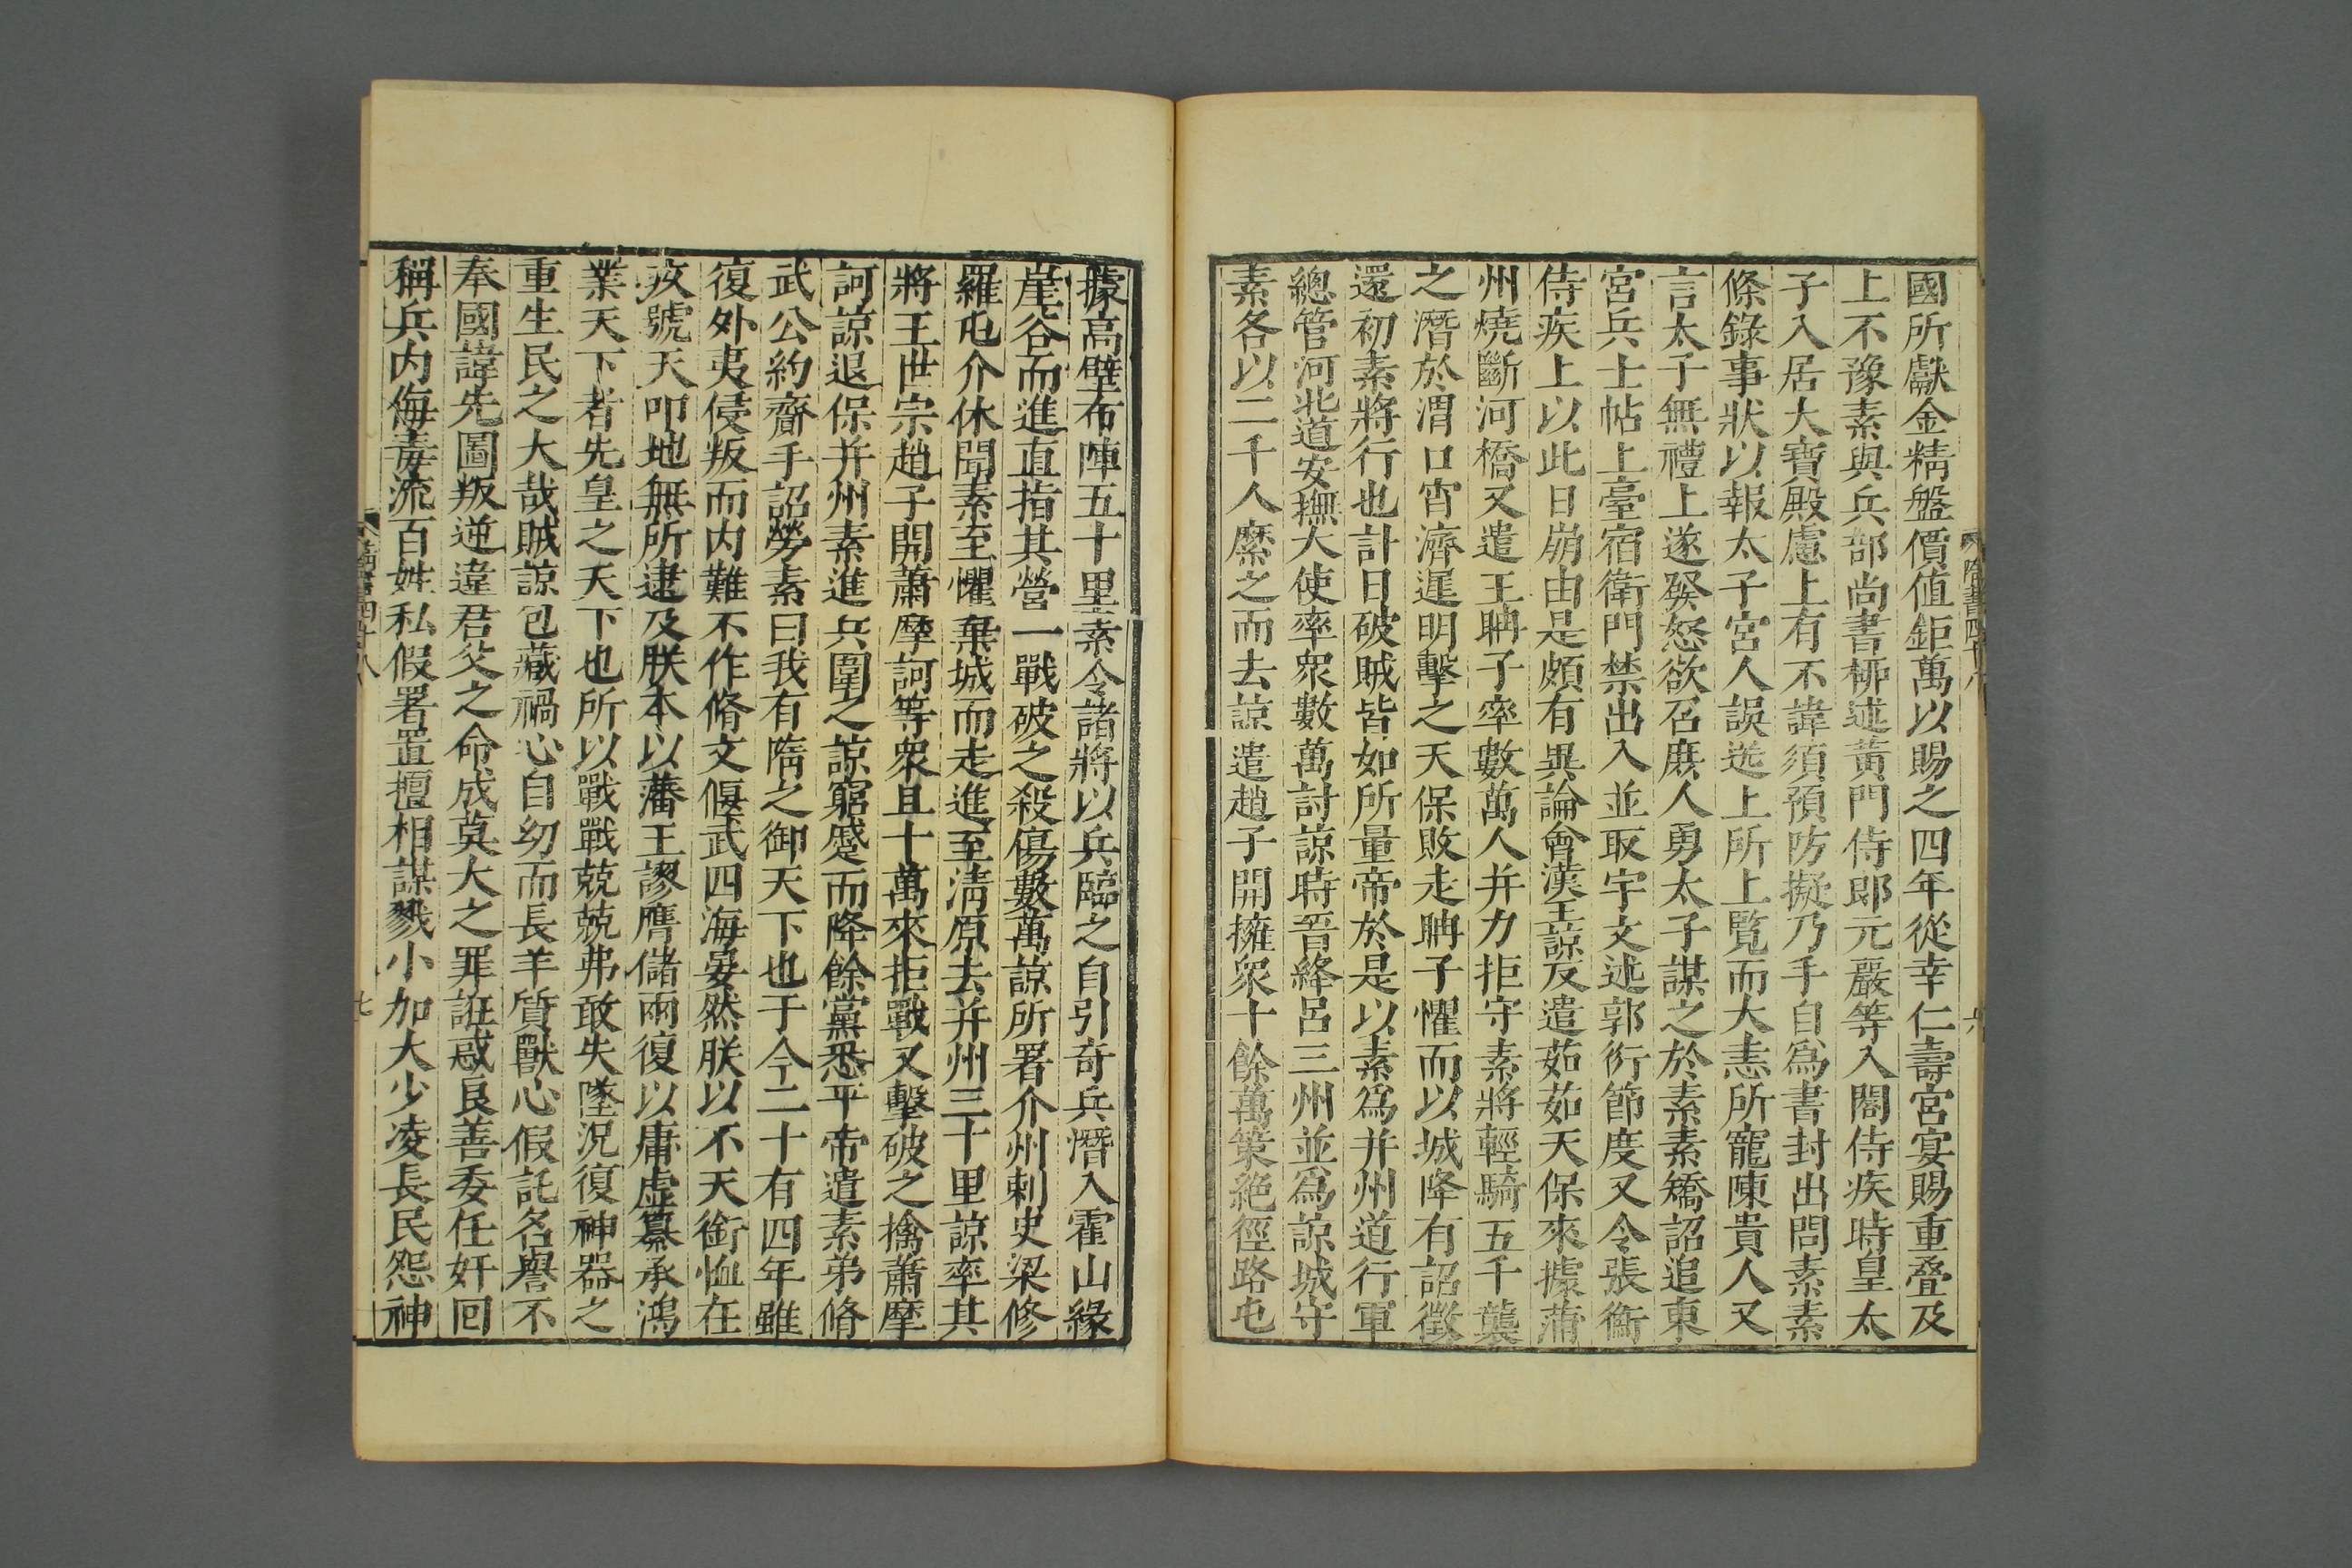 國所獻金精盤價值鉅萬以賜之四年從幸仁壽宮宴賜重疊及
上不豫素與兵部尚書柳述黃門侍郎元嚴等入閤侍疾時皇太
子入居大寶殿慮上有不諱須預防擬乃手自爲書封出問素素
條錄事狀以報太子宮人誤送上所上覽而大恚所寵陳貴人又
言太子無禮上遂發怒欲召庶人勇太子謀之於素素矯詔追東
宮兵士帖上臺宿衛門禁出入並取宇文述郭衍節度又令張衡
侍疾上以此日崩由是頗有異論會漢王諒反遣茹茹天保來據蒲
州燒斷河橋又遣王聃子率數萬人并力拒守素將輕騎五千襲
之潛於渭口宵濟遲明擊之天保敗走聃子懼而以城降有詔徵
還初素將行也計日破賊皆如所量帝於是以素爲并州道行軍
總管河北道安撫大使率衆數萬討諒時晉絳呂三州並爲諒城守
素各以二千人縻之而去諒遣趙子開擁衆十餘萬策絕徑路屯
據高壁布陣五十里素令諸將以兵臨之自引奇兵潛入霍山緣
崖谷而進直指其營一戰破之殺傷數萬諒所署介州刺史梁修
羅屯介休聞素至懼棄城而走進至淸原去并州三十里諒率其
將王世宗趙子開蕭摩訶等衆且十萬來拒戰又擊破之擒蕭摩
訶諒退保并州素進兵圍之諒窮蹙而降餘黨悉平帝遣素弟脩
武公約齎手詔勞素曰我有隋之御天下也于今二十有四年雖
復外夷侵叛而内難不作脩文偃武四海晏然朕以不天銜恤在
疚號天叩地無所逮及朕本以藩王謬膺儲兩復以庸虛纂承鴻
業天下者先皇之天下也所以戰戰兢兢弗敢失墜況復神器之
重生民之大哉賊諒包藏禍心自幼而長羊質獸心假託名譽不
奉國諱先圖叛逆違君父之命成莫大之罪誑惑良善委任奸回
稱兵内侮毒流百姓私假署置擅相謀戮小加大少凌長民怨神